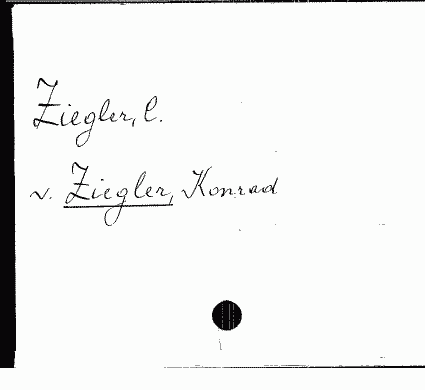 Ziegler, C.
v. Ziegler, Konrad